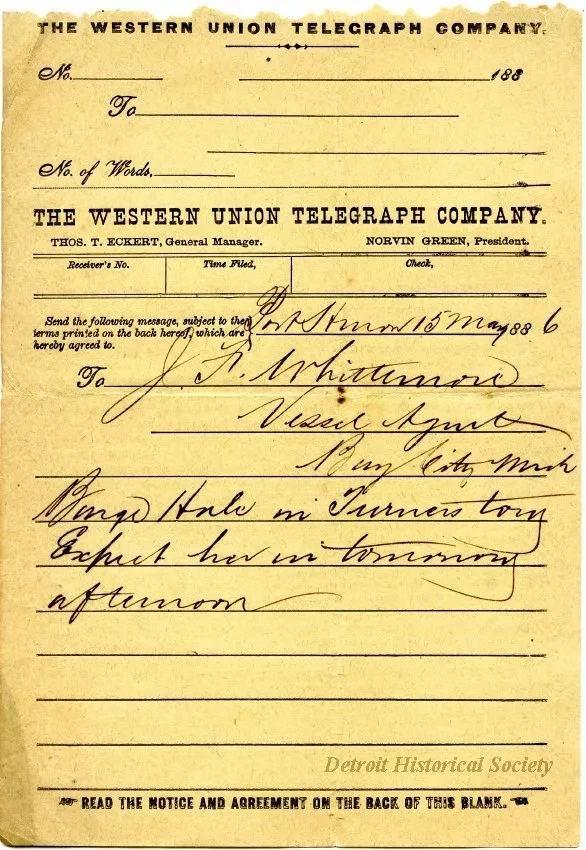 THE WESTERN UNION TELEGRAPH COMPANY.
No. 188
To
No. of Words,
THE WESTERN UNION TELEGRAPH COMPANY.
THOS. T. ECKERT, General Manager. NORVIN GREEN, President.
Receiver's No. Time Filed, Check,
Send the following message, subject to the
terms printed on the back hereof, which are
hereby agreed to.
Port Huron 15 May 1886
To J. F. Whittemore
Vessel Agent
Bay City Mich
Barge Hale in Turners tow
Expect her in tomorrow
afternoon
Detroit Historical Society
READ THE NOTICE AND AGREEMENT ON THE BACK OF THIS BLANK.